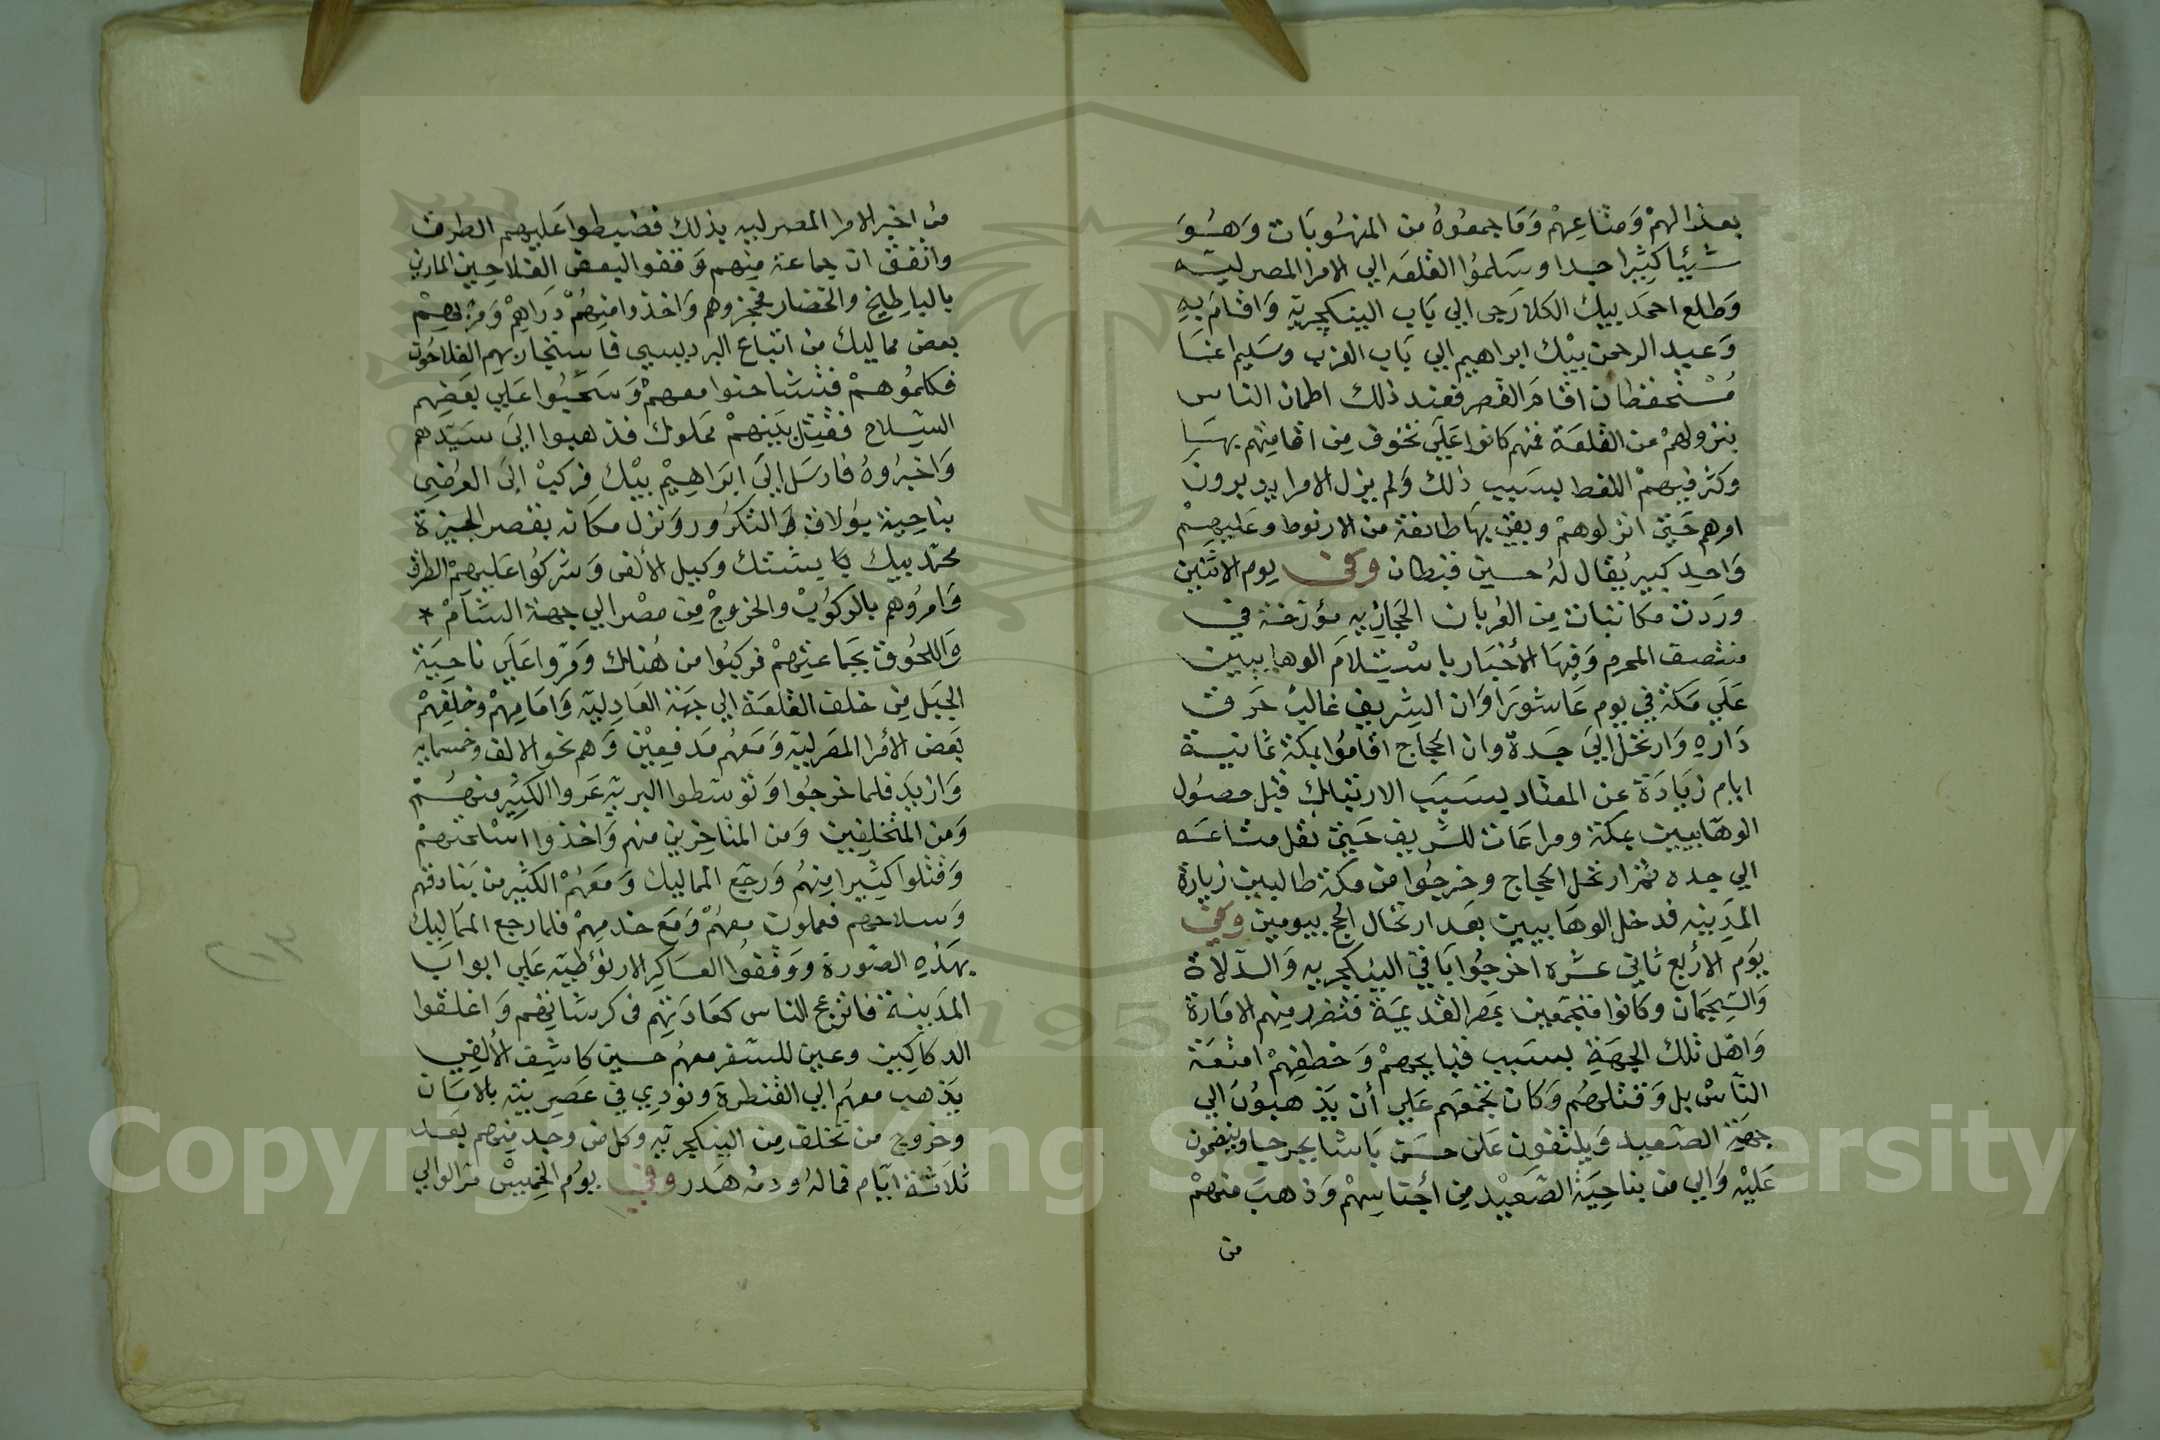 بعزالهمْ وَمتاعِهمْ وَمَا جمعُوهُ من المنهُوبَات وَهُوَ
شيْئا كثِيرا جدا وسَلمُوا القلعَه الي الامرا المصرليه
وَطلع احمَد بيك الكلارَجى الي بَاب الينكجريّة وَاقامَ بِهِ
وَعبد الرحمن بيْك ابراهيم الي بَاب العزب وسَليم اغَا
مُسْتحفظان اقامَ القصر فعند ذلك اطمان الناس
بنزولهمْ من القلعَة فهم كانوا عَلَى تخوف مِن اقامِتهم بهَا
وكثر فيهمْ اللغط بسَبب ذلك وَلم يزل الامرا يدبرون
امرهم حَتى انزلوهمْ وبقي بهَا طائفة من الارنوط وعَليهمْ
وَاحِد كبير يُقال لهُ حسين قبطان وفى يوم الاثنين
ورَدت مكاتبات مِن العُربان الحجازيه مؤرّخة في
منتصف المحرم وَفيهَا الأخبَار باسْتيلامَ الوهابيين
عَلَي مَكة في يوم عَاشورَا وَان الشريف غالبُ حَرق
دَارهِ وَارتحَل اليَ جَدة وان الحجاج اقامُوا بمكة ثمانية
ايام زيَادَة عن المعتاد بسَبَب الارتباك قبل حصُول
الوهّابيين بمكة ومراعَات للشريف حَتى نقل متاعَه
الي جده ثم ارتحل الحجاج وخرجُوا من مكة طالبين زيارة
المدِينه فدخل الوهَابيين بعَد ارتحال الحج بيومين وفي
يوَم الأربع ثاني عشره اخرجُوا بَاقي الينكجريه وَالدلاة
وَالسِّجمَان وكانوا متجمّعين بمَصر القديمَة فتضرر مِنهم الامَارة
وَاهل تلك الجهَةِ بسَبب قبايحِهمْ وَخطفِهمْ امتعَة
النَاسْ بل وَقتلهُم وَكان تجمعَهم عَلَي أن يَذهبُونَ الي
جهَة الصّعيد وَيلتفون عَلى حسَن بَاشا بجرجا وينضمون
عَليْه وَالي من بناحِيَة الصّعَيْد مِن أجناسِهمْ وَذهبَ منهمْ
من
من اخبر الامرا المصرليه بذلك فضبطوا عَليهم الطرق
واتفق ان جماعة مِنهم وَقفوا لبعض الفلاحِين المارين
بالباطِيخ والخضار فحجزوهم وَاخذوا مِنهُمْ دَراهِمْ وَمرّ بهِمْ
بعض مماليك من اتباع البرديسي فاستجار بهم الفلاحون
فكلمُوهمْ فتشاحنوا معهمْ وَسَحَبُوا عَلي بَعضِهم
السِّلاح فقتِل بَينهمْ مَملوك فذهبوا اليَ سَيّدهم
وَاخبرُوهُ فارسَل إليَ ابَراهِيمْ بيْك فركبْ إلىَ العرُضِى
بناحِية بوُلاق التكرُور وَترَك مكانه بقصر الجيزة
محمّد بيك بشتك وكيل الألفى وَشركوُا عَليهمْ الطرق
وَامرُوهم بالركوُبْ والخروجْ مِن مصْر الي جهة الشامْ *
وَاللحُوق بجَماعتِهمْ فركبُوا من هُناك وَمَرّوا عَلَي ناحِيَة
الجبَل مِن خلف القلعَة الي جَهَة العَادِليّه وَامَامِهمْ وخلفِهمْ
بَعَض الأمرا المصَرليّه وَمَعَهُم مَدفعِيْن وَهم نحو الالف وخمسمايه
وَازيَد فلما خرجُوا وَتوسَّطوا البريّه عَروا الكثِير مِنهُمْ
وَمن المتخلفِين وَمن المتاخِرين منهم وَاخذوا اسْلحتهمْ
وَقتلوا كثِيرا مِنهُم وَرجَع المماليك وَمَعهُمْ الكثير من بَنادقهم
وَسلاحهم فعملوت معهُمْ وَمَع خدمِهمْ فلما رجع الممَاليك
بِهَذِهِ الصّورة ووَقفوُا العسَاكر الارنوُطيّه عَلي ابواب
المدَينة فانزعج الناس كعَادَتهِم في كرشاتِهم وَاغلقوا
الدكاكِين وعين للسفر معهُم حسين كاشف الألفي
يَذهب معهُم الي القنطرة ونودِي في عَصرِيته بالامَان
وخروج من تخلف مِن الينكجريّه وكل من وجد مِنهم بعَد
ثلاثة ايّام فمالهُ ودمهُ هدَر وفي يوُم الخمِيسْ مرّ الوالي